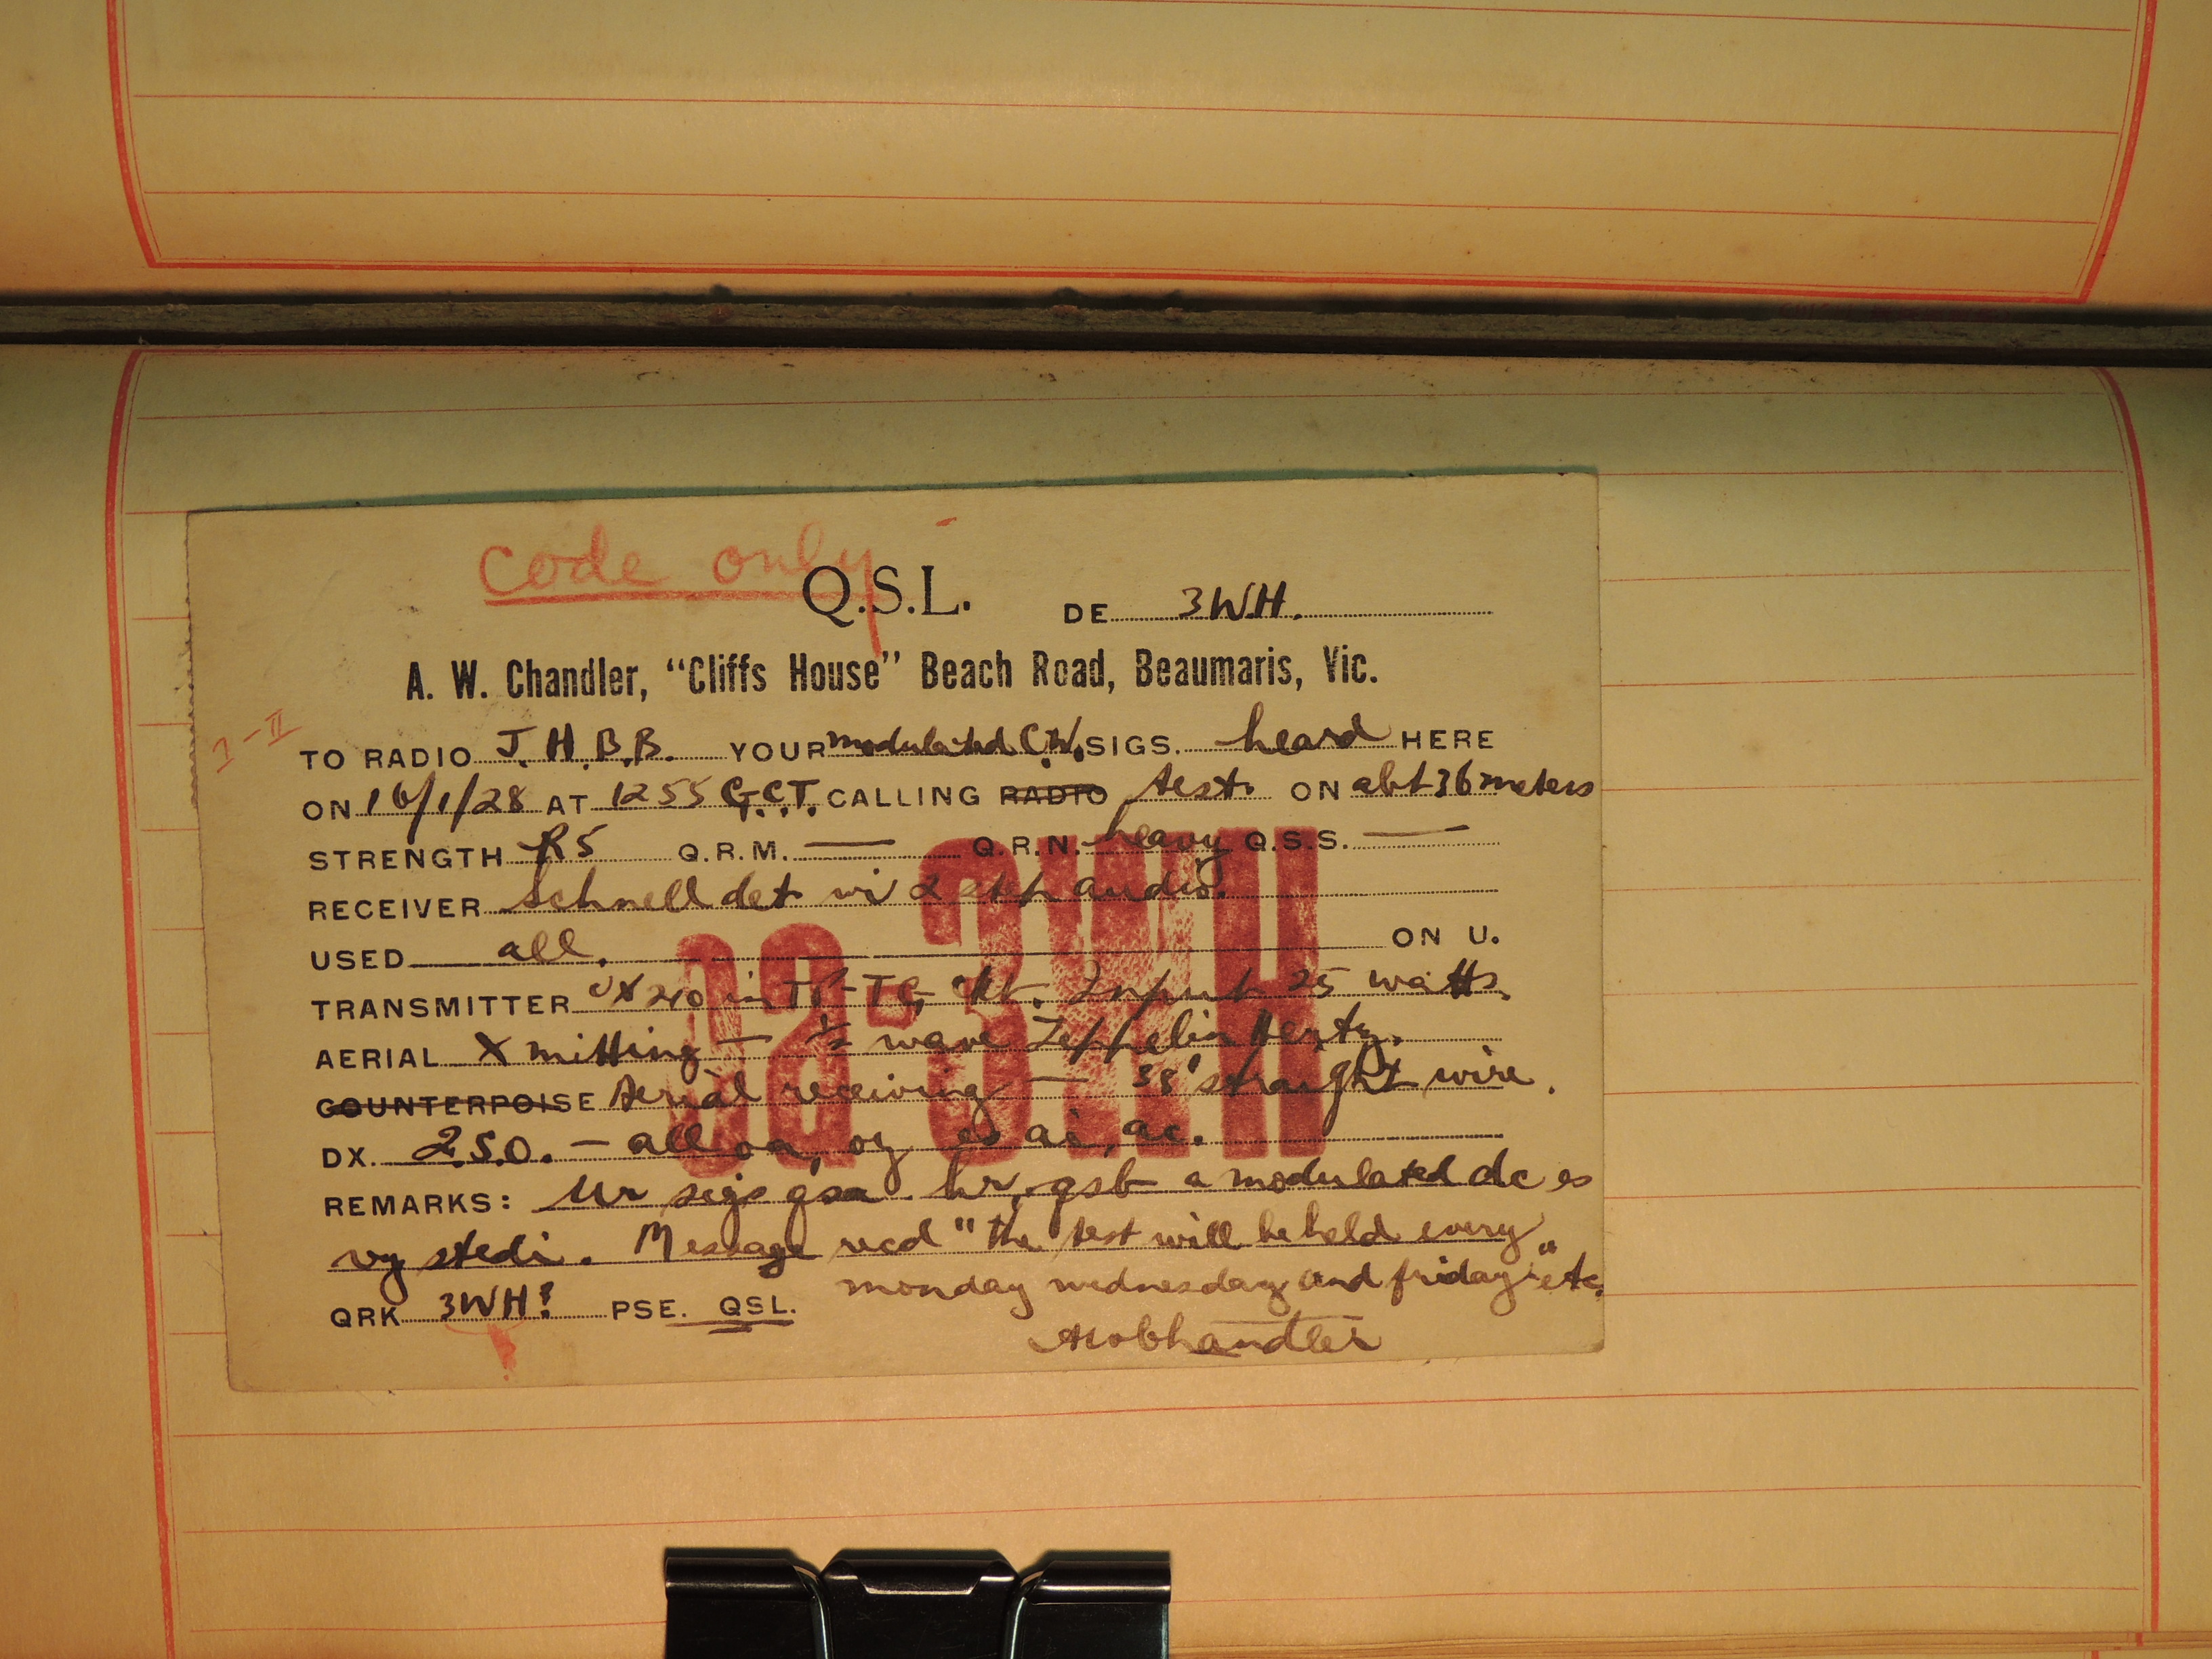 code only
Q.S.L. DE 3WH.
A. W. Chandler, "Cliffs House" Beach Road, Beaumaris, Vic.
I-II
TO RADIO J.H.B.B. YOUR modulated C.W. SIGS. heard HERE
ON 16/1/28 AT 1255 G.C.T. CALLING RADIO test. ON abt 36 meters
STRENGTH R5 Q.R.M. — Q.R.N. heavy Q.S.S. —
RECEIVER Schnell det wi 2 step audio.
USED all. ON U.
TRANSMITTER UX210 in TP-TG ckt. Input 25 watts.
AERIAL Xmitting — ½ wave Zeppelin Hertz.
COUNTERPOISE Aerial receiving — 38' straight wire.
DX. 2.S.O. — all oa, oz es ai, ac.
REMARKS: Ur sigs qsa hr, qsb a modulated dc es
vy stedi. Message recd "the test will be held every
monday wednesday and friday" etc.
QRK 3WH? PSE. QSL.
oa-3WH